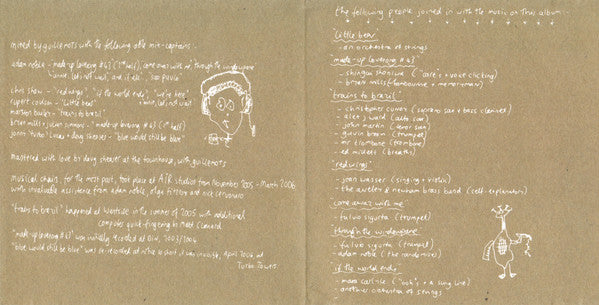 mixed by guillemots with the following able mix-captains:
adam noble - "made-up lovesong #43" (1st half), "come away with me", "through the windowpane"
"annie, let's not wait", and if all..", "sao paulo"
chris shaw - "redwings", "if the world ends", "we're here"
rupert coulson - "little bear" + annie, let's not wait
morgan - "trains to brazil"
brian mills + - "made-up lovesong #43" (2nd half)
jonny "turbo" + doug shearer - "blue would still be blue"
mastered with love by doug shearer at the townhouse, with guillemots
musical chairs, for the most part, took place at AIR studios from November 2005 - March 2006
with invaluable assistance from adam noble, olga fitzroy and nick cervonaro
"trains to brazil" happened at Westside in the summer of 2005 with additional
computer quick-fingering by matt
"made-up lovesong #43" was initially recorded at 2003/2004
"blue would still be blue" was at so short it was invisible, April 2006, at
Turbo Towers
the following people joined in with the music on this album:-
"little bear"
- an orchestra of strings
"made-up lovesong #43"
- ("care"s + voice clicking)
- brian mills
"trains to brazil"
- christopher cundy (soprano sax + bass clarinet)
- alex ward (alto sax)
- john martin (tenor sax)
- gavin broom (trumpet)
- mr trombone (trombone)
- ed (breaths)
"redwings"
- joan wasser (singing + violin)
- the aveley & newham brass band (self-explanatory)
come away with me
- fulvio sigurta (trumpet)
through the windowpane
- fulvio sigurta (trumpet)
- adam noble (the randomiser)
if the world ends
- mara carlyle ("ooh"s + a sung line)
- another orchestra of strings